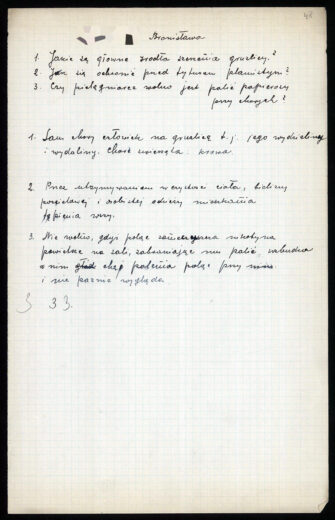 48
Bronisława
1. Jakie są główne źródła szerzenia gruźlicy?
2. Jak się ochronić przed tyfusem plamistym?
3. Czy pielęgniarce wolno jest palić papierosy
przy chorych?
1. Sam chory człowiek na gruźlicę t. j. jego wydzieliny
i wydaliny. Chore zwierzęta. krowa.
2. Przez utrzymywanie w czystości ciała, bielizny
pościelowej i osobistej odzieży mieszkania
tępienia wszy.
3. Nie wolno, gdyż paląc zanieczyszcza nikotyną
powietrze na sali, zabraniając mu palić, wzbudza
w nim chęć palenia paląc przy nim
i nie ładnie wygląda
3 3.